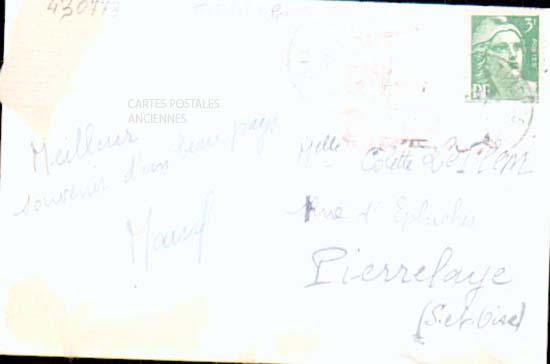 430773
CARTES POSTALES
ANCIENNES
3F
POSTES
RF
Meilleur
souvenir d'un beau pays
Melle Colette
Rue d'Epluches
Pierrelaye
(S.et.Oise)